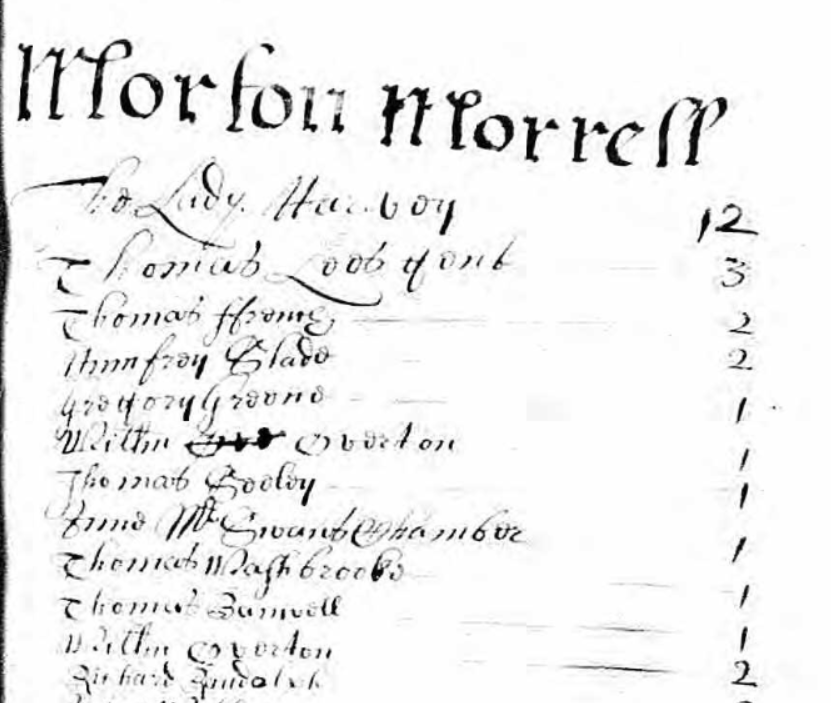 Morton Morrell
The Lady Harvey 12
Thomas Lees gent 3
Thomas ffrenc 2
Humfrey Slade 2
Gregory Greene 1
Willm Overton 1
Thomas Seeley 1
Anne Swants Chamber 1
Thomas Washbrooke 1
Thomas Samuell 1
Willm Overton
Richard Randolph 2